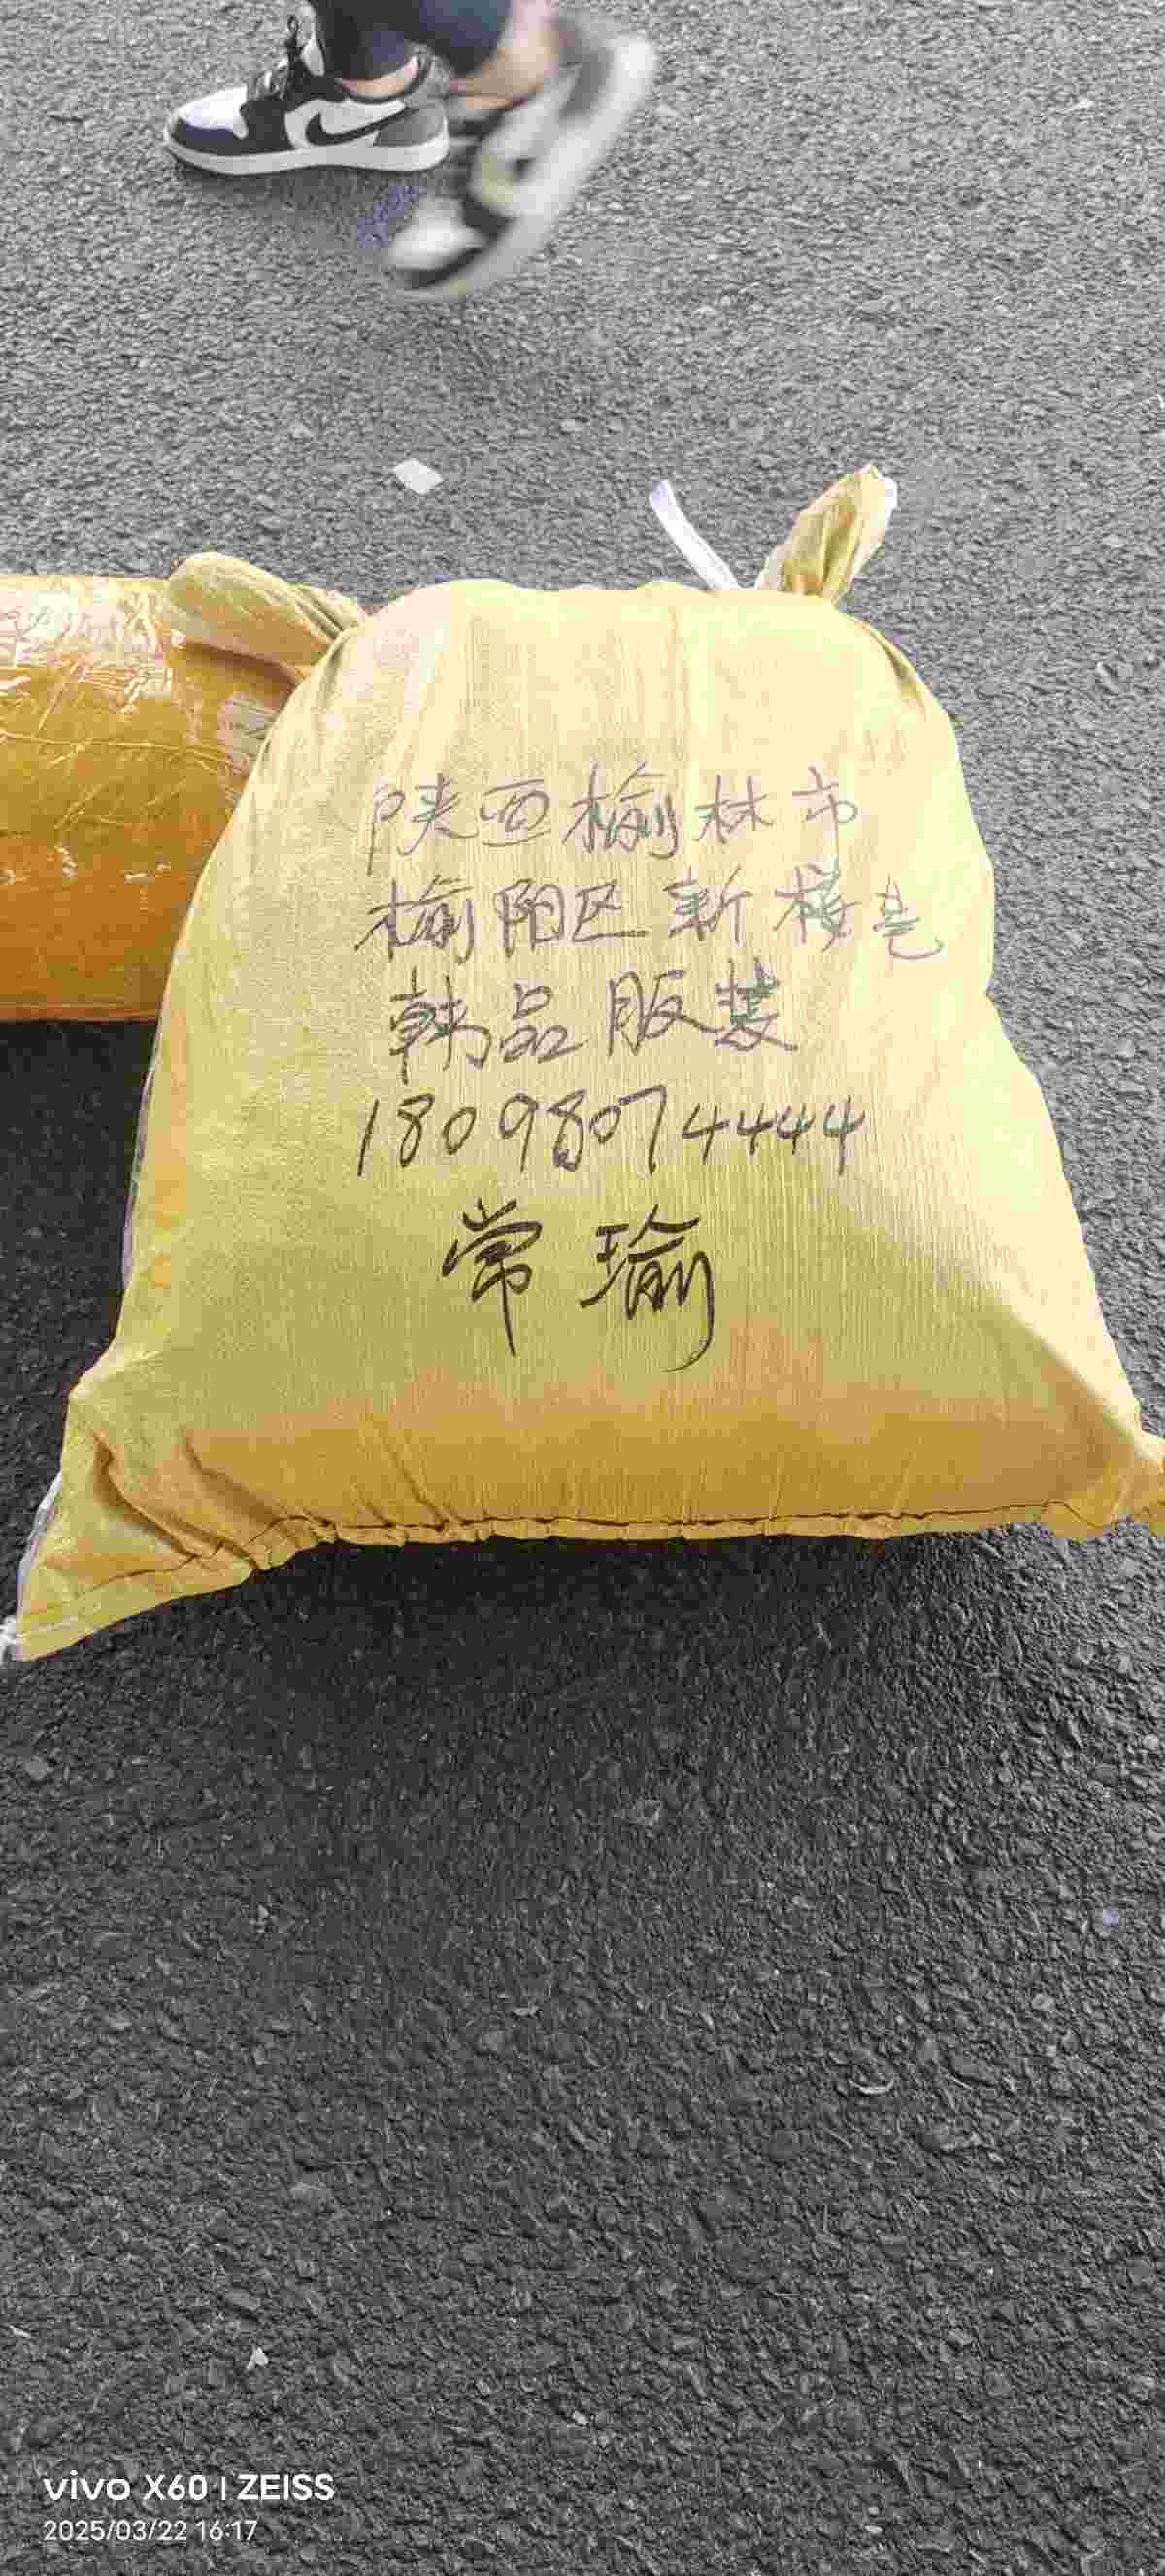 陕西榆林市
榆阳区新楼巷
韩品服装
18098074444
常瑜
vivo X60 | ZEISS
2025/03/22 16:17